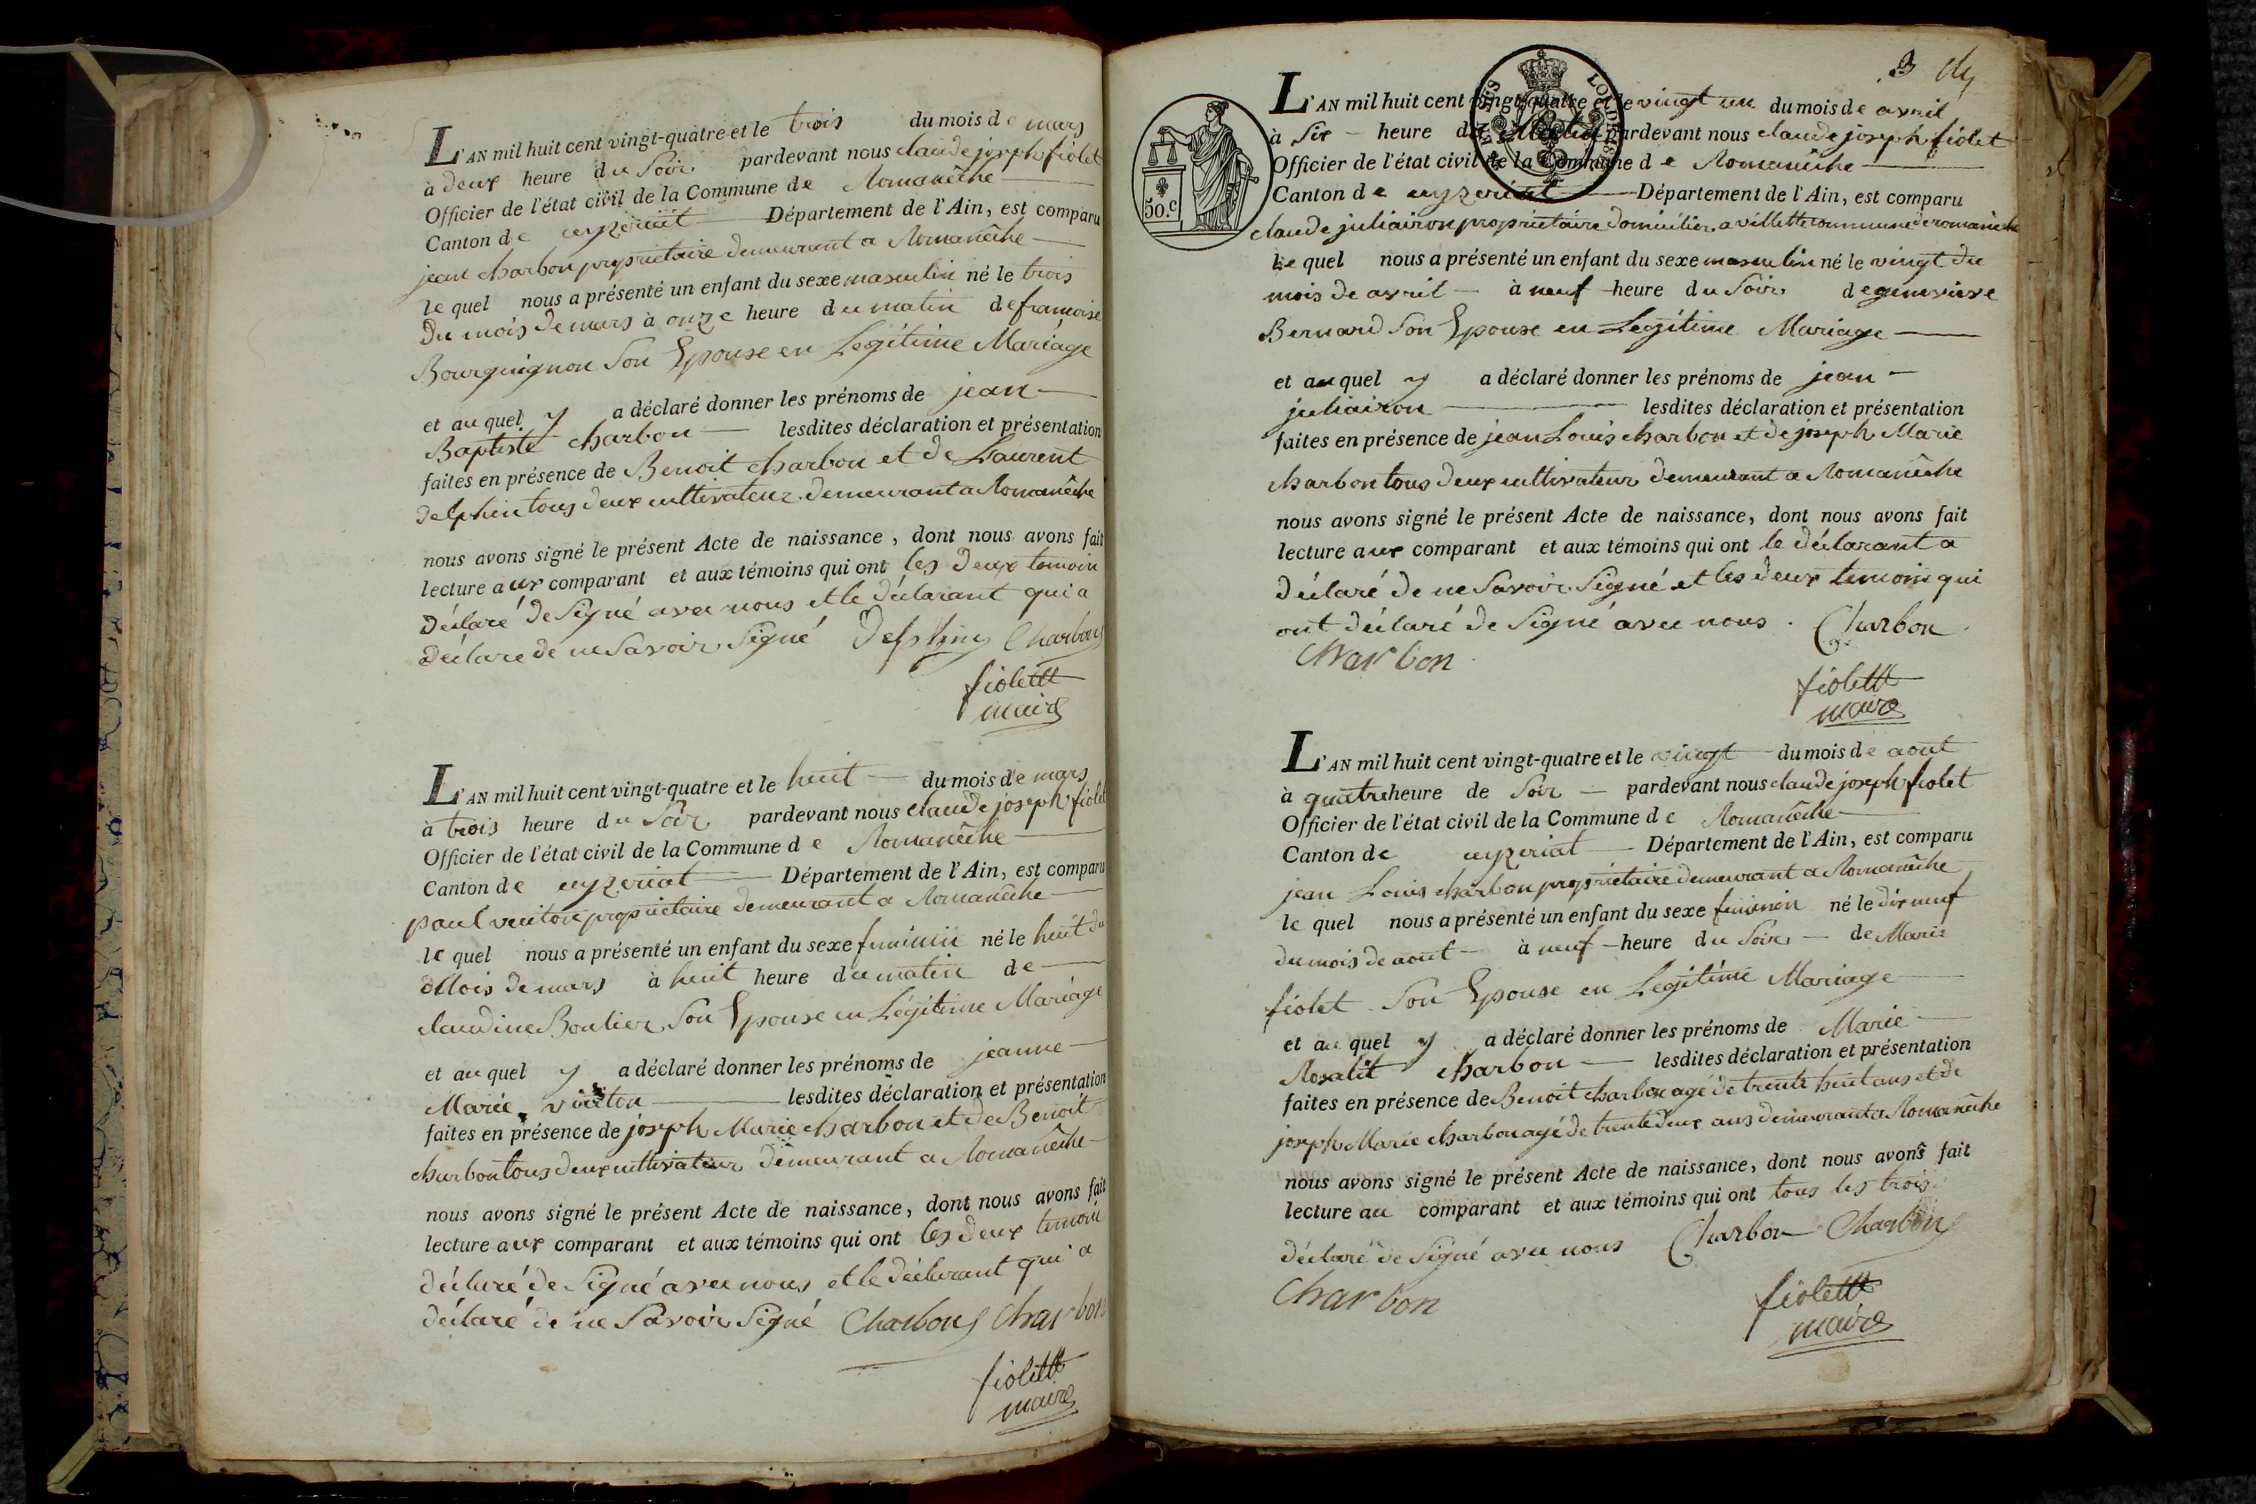 L'AN mil huit cent vingt-quatre et le trois du mois de mars
à deux heure du Soir pardevant nous claude joseph fiolet
Officier de l'état civil de la Commune de Romanêche
Canton de ceyzeriat Département de l'Ain, est comparu
jean charbon proprietaire demeurant a Romanêche
le quel nous a présenté un enfant du sexe masculin né le trois
Du mois de mars à onze heure du matin de francoise
Bourguignon Son Epouse en Legitime Mariage
et au quel y a déclaré donner les prénoms de jean
Baptiste charbon lesdites déclaration et présentation
faites en présence de Benoit charbon et de Laurent
delphin tous deux cultivateur demeurant a Romanêche
nous avons signé le présent Acte de naissance, dont nous avons fait
lecture aux comparant et aux témoins qui ont les deux temoin
Déclaré de Signé avec nous et le déclarant qui a
déclaré de ne Savoir Signé Delphin Charbon
fiolet
maire
L'AN mil huit cent vingt-quatre et le huit du mois de mars
à trois heure du Soir pardevant nous claude joseph fiolet
Officier de l'état civil de la Commune de Romanêche
Canton de ceyzeriat Département de l'Ain, est comparu
paul vuiton proprietaire demeurant a Romanêche
le quel nous a présenté un enfant du sexe feminin né le huit du
Mois de mars à huit heure du matin de
claudine Boulier Son Epouse en Légitime Mariage
et au quel y a déclaré donner les prénoms de jeanne
Marie vuiton lesdites déclaration et présentation
faites en présence de joseph Marie charbon et de Benoit
charbon tous deux cultivateur demeurant a Romanêche
nous avons signé le présent Acte de naissance, dont nous avons fait
lecture aux comparant et aux témoins qui ont les deux temoin
déclaré de Signé avec nous et le déclarant qui a
déclaré de ne Savoir Signé Charbon Charbon
fiolet
maire
3
50.c
L'AN mil huit cent vingt-quatre et le vingt un du mois de avril
à Six heure du Matin pardevant nous claude joseph fiolet
Officier de l'état civil de la Commune de Romanêche
Canton de ceyzeriat Département de l'Ain, est comparu
claude juliairon proprietaire domicilier a villette commune de romanêche
le quel nous a présenté un enfant du sexe masculin né le vingt du
mois de avril à neuf heure du Soir de genevieve
Bernard Son Epouse en Legitime Mariage
et au quel y a déclaré donner les prénoms de jean
juliairon lesdites déclaration et présentation
faites en présence de jean Louis charbon et de joseph Marie
charbon tous deux cultivateur demeurant a Romanêche
nous avons signé le présent Acte de naissance, dont nous avons fait
lecture aux comparant et aux témoins qui ont le déclarant a
déclaré de ne Savoir Signé et les deux temoin qui
ont déclaré de Signé avec nous. Charbon
Charbon
fiolet
maire
L'AN mil huit cent vingt-quatre et le vingt du mois de aout
à quatre heure de Soir pardevant nous claude joseph fiolet
Officier de l'état civil de la Commune de Romanêche
Canton de ceyzeriat Département de l'Ain, est comparu
jean Louis charbon proprietaire demeurant a Romanêche
le quel nous a présenté un enfant du sexe feminin né le dix neuf
du mois de aout à neuf heure du Soir de Marie
fiolet Son Epouse en Legitime Mariage
et au quel y a déclaré donner les prénoms de Marie
Rosalit charbon lesdites déclaration et présentation
faites en présence de Benoit charbon agé de trente huit ans et de
joseph Marie charbon agé de trente deux ans demeurant a Romanêche
nous avons signé le présent Acte de naissance, dont nous avons fait
lecture au comparant et aux témoins qui ont tous les trois
déclaré de Signé avec nous Charbon Charbon
Charbon
fiolet
maire